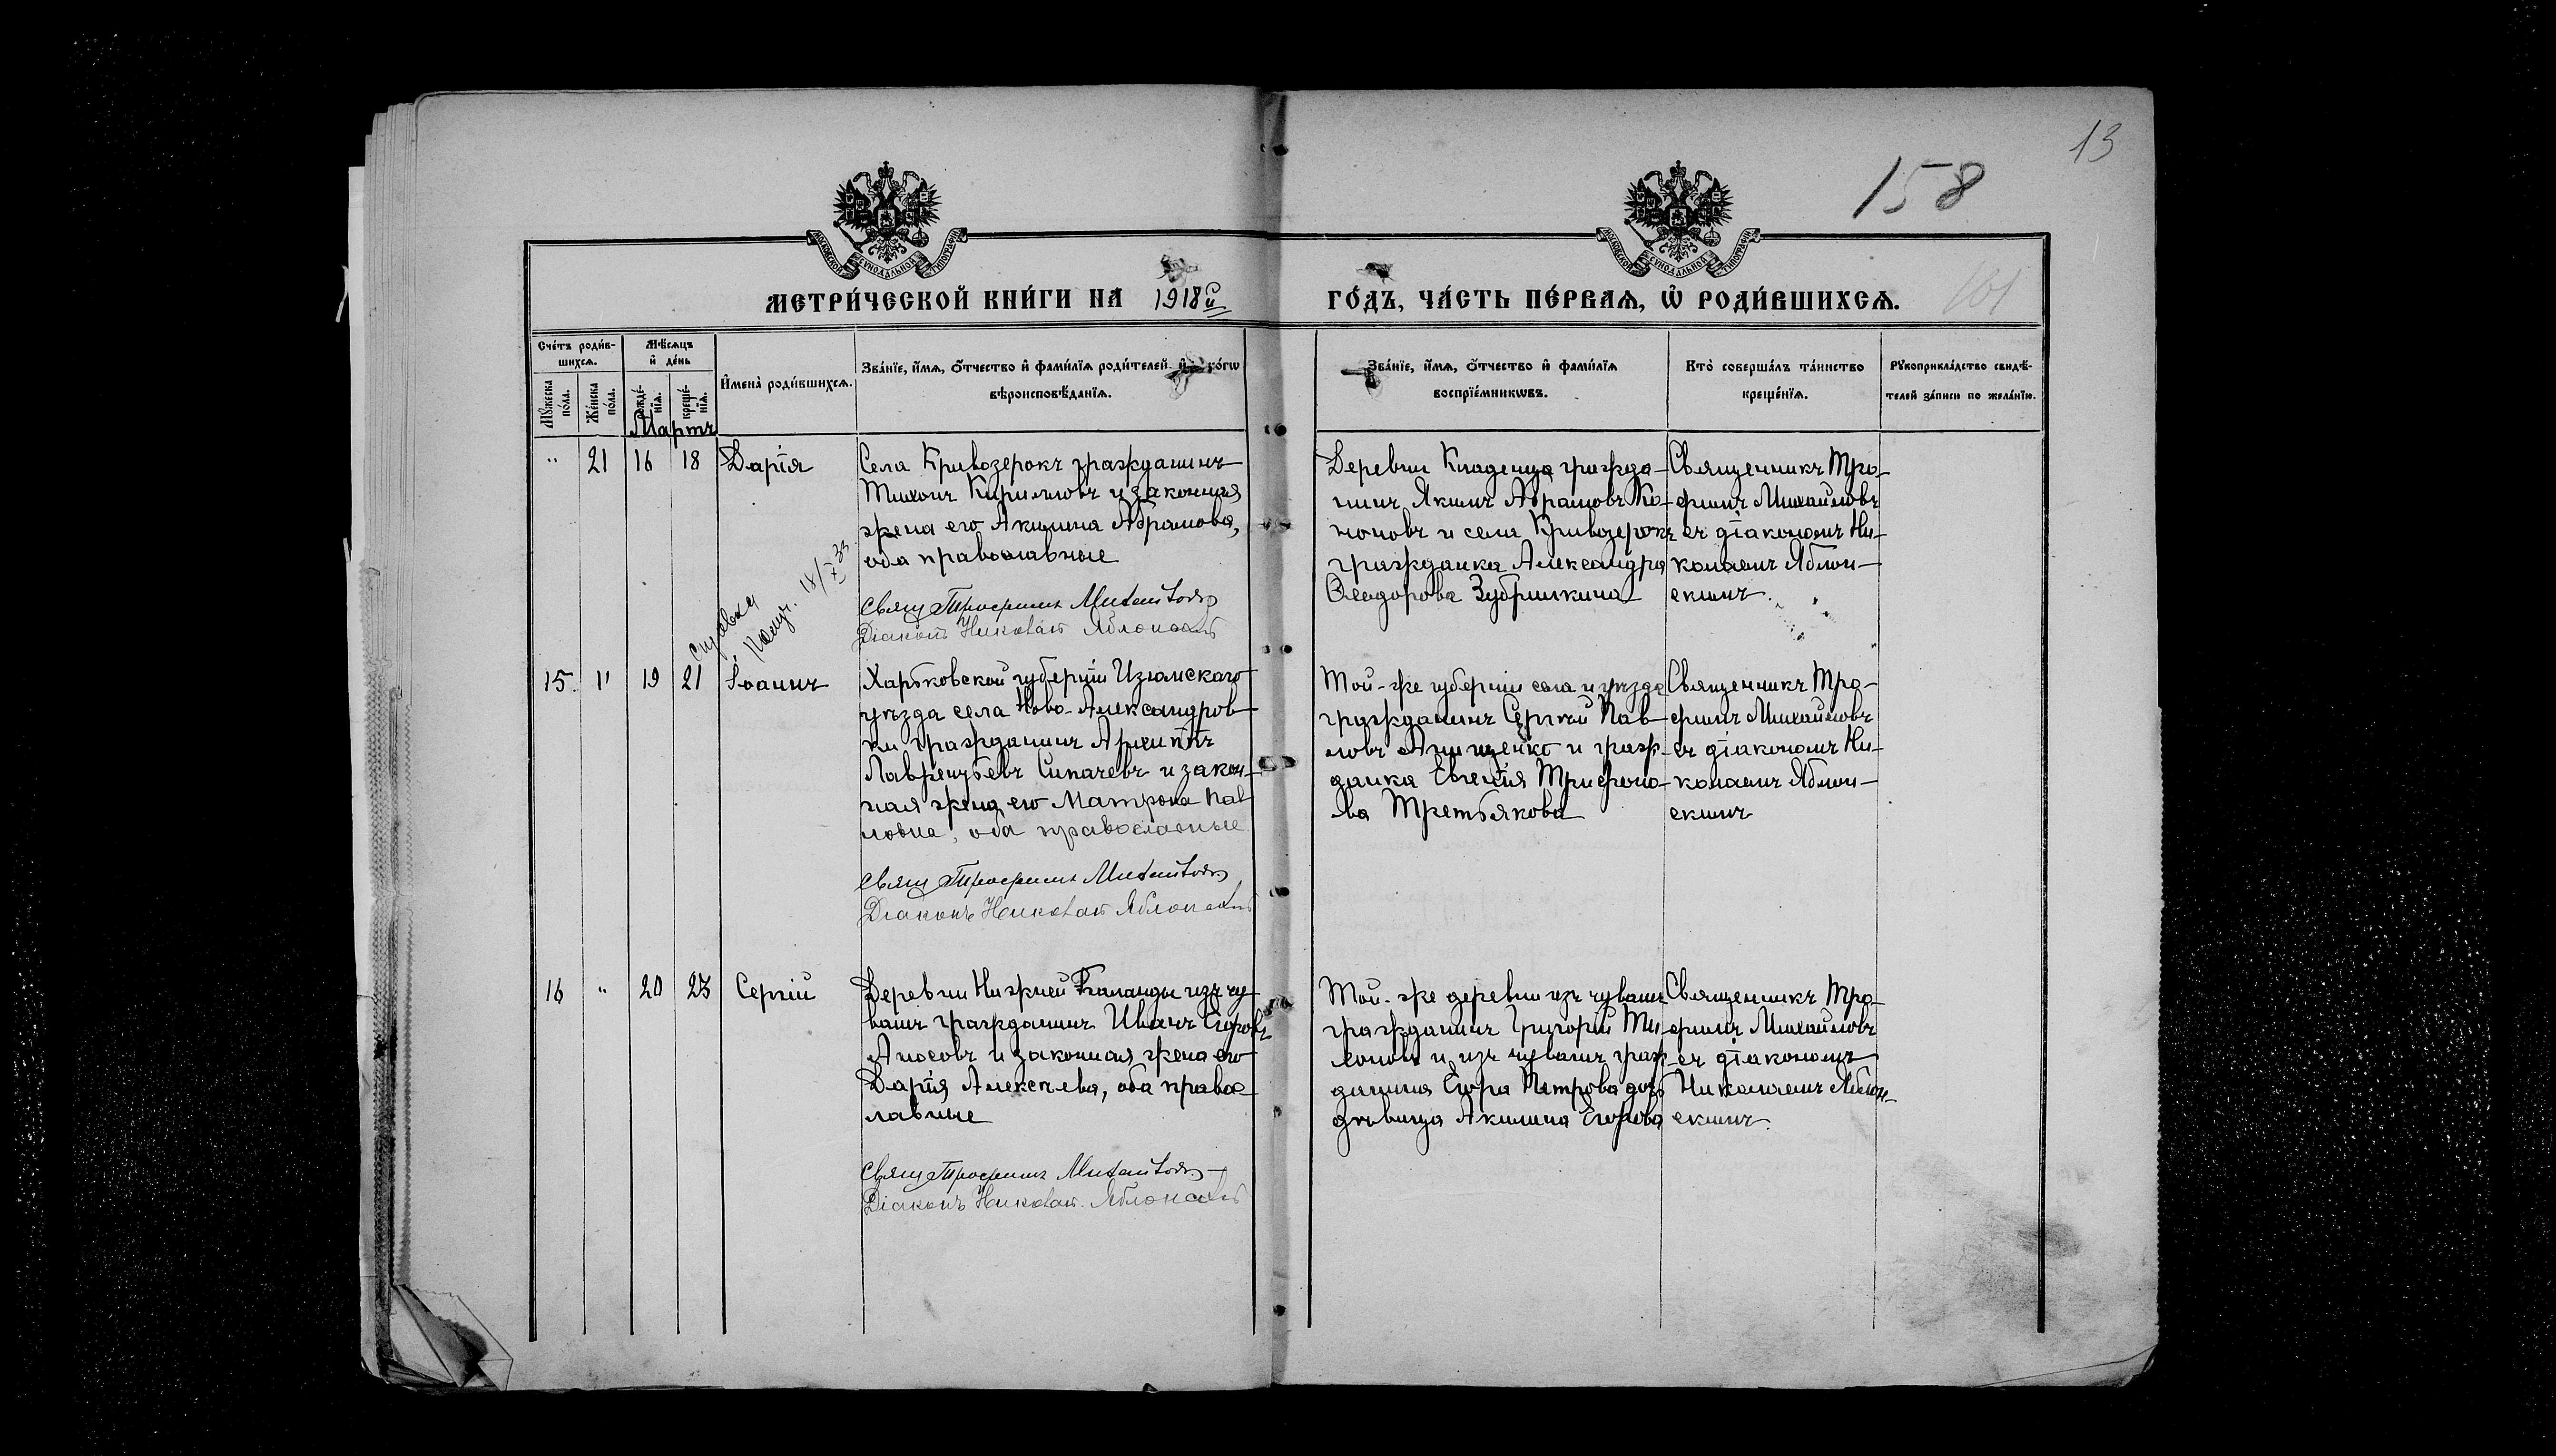 13
158
МОСКОВСКОЙ СѴНОДАЛЬНОЙ ТИПОГРАФІИ
МОСКОВСКОЙ СѴНОДАЛЬНОЙ ТИПОГРАФІИ
МЕТРИ́ЧЕСКОЙ КНИ́ГИ НА 1918й ГО́ДЪ, ЧА́СТЬ ПЕ́РВАѦ, Ѽ РОДИ́ВШИХСѦ.
101
Сче́тъ роди́в-
шихсѧ.
Мꙋжеска
по́ла.
Же́нска
по́ла.
Мѣ́сѧцъ
и҆ де́нь
рожде́-
нїѧ.
креще́-
нїѧ.
И҆мена̀ роди́вшихсѧ.
Зва́нїе, и҆́мѧ, ѻ҆́тчество и҆ фами́лїѧ роди́телей, и҆ ко́гѡ
вѣроисповѣ́данїѧ.
Зва́нїе, и҆́мѧ, ѻ҆́тчество и҆ фами́лїѧ
воспрїе́мникѡвъ.
Кто̀ соверша́лъ та́инство
креще́нїѧ.
Рꙋкоприкла́дство свидѣ́-
телей за́писи по жела́нїю.
Мартъ
" 21 16 18 Дарія
Села Кривозерокъ гражданинъ
Тихонъ Кирилловъ и законная
жена его Акилина Абрамова,
оба православные
Свящ Трофимъ Михайловъ
Діаконъ Николай Яблонскій
Деревни Кладенца гражда-
нинъ Якимъ Абрамовъ Ко-
ноновъ и села Кривозерокъ
гражданка Александра
Ѳеодорова Зубрилкина
Священникъ Тро-
фимъ Михайловъ
съ діакономъ Ни-
колаемъ Яблон-
скимъ.
Справка
18/X 33
15. " 19 21 Іоаннъ
Харьковской губерніи Изюмскаго
уѣзда села Ново-Александров-
ки гражданинъ Архиппъ
Лаврентьевъ Сипачевъ и закон-
ная жена его Матрона Пав-
ловна, оба православные
Свящ Трофимъ Михайловъ
Діаконъ Николай Яблонскій
Той-же губерніи села и уѣзда
гражданинъ Сергѣй Пав-
ловъ Анищенко и граж-
данка Евгенія Трифоно-
ва Третьякова
Священникъ Тро-
фимъ Михайловъ
съ діакономъ Ни-
колаемъ Яблон-
скимъ
16 " 20 23 Сергій
Деревни Нижней Баланды изъ чу-
вашъ гражданинъ Иванъ Егоровъ
Аносовъ и законная жена его
Дарія Алексѣева, оба правос-
лавные
Свящ Трофимъ Михайловъ
Діаконъ Николай Яблонскій
Той-же деревни изъ чувашъ
гражданинъ Григорій Ти-
и изъ чувашъ граж-
данина Егора Петрова дочь
дѣвица Акилина Егорова
Священникъ Тро-
фимъ Михайловъ
съ діакономъ
Николаемъ Яблон-
скимъ.